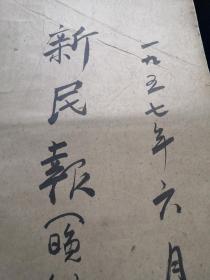 一九五七年六月
新民報(晚